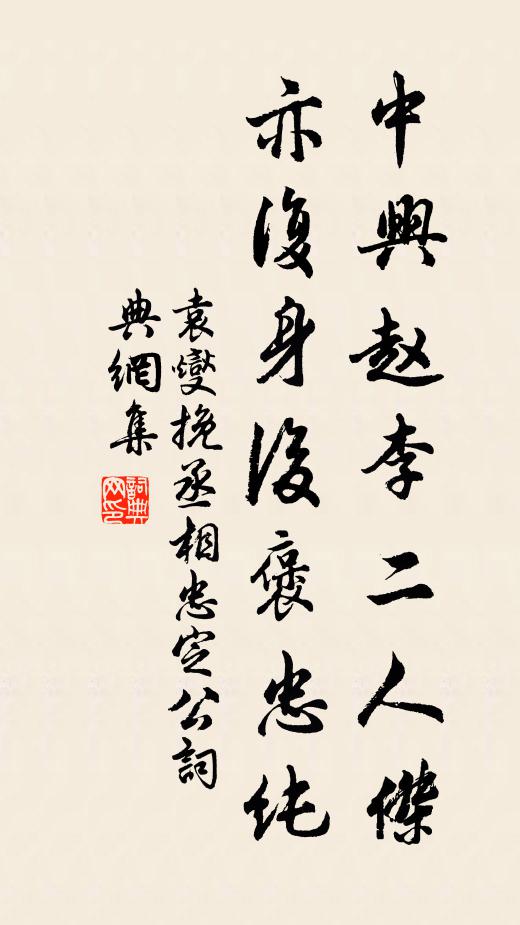 中興赵李二人傑
亦復身後褒忠纯
袁燮挽丞相忠定公詞
典網集
詞典
网印